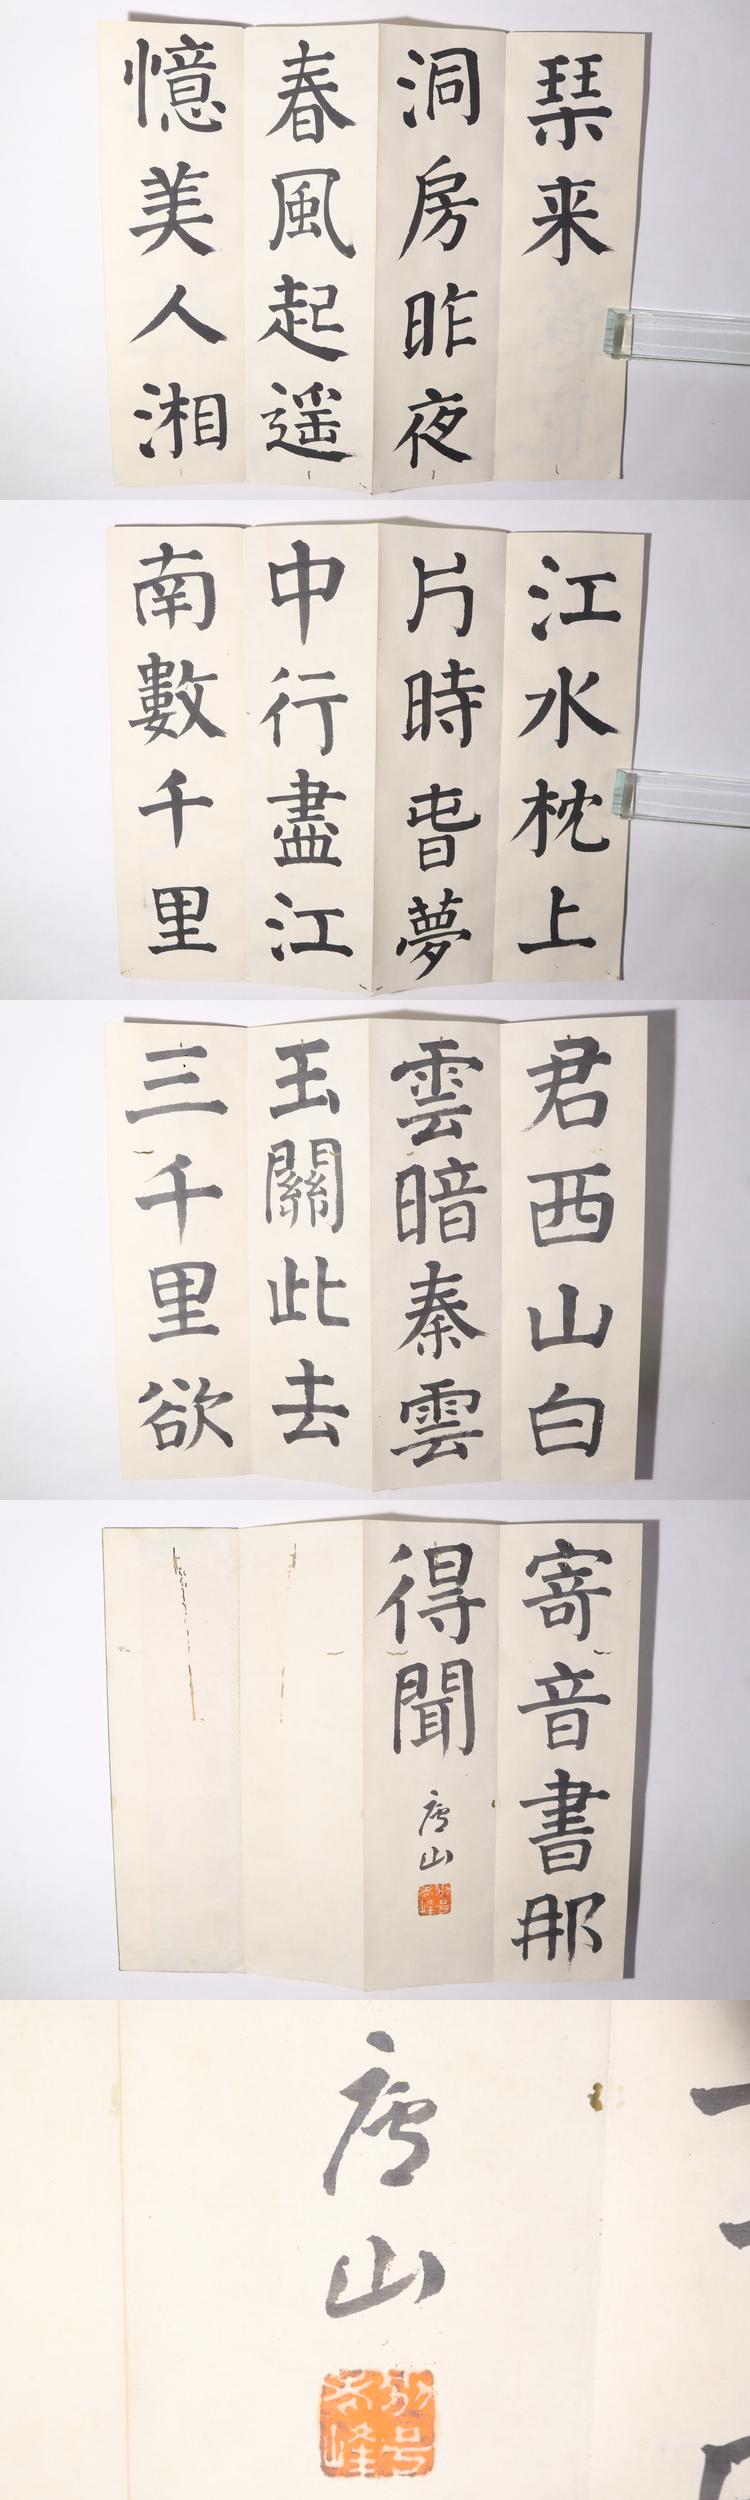 琹来
洞房昨夜
春風起遥
憶美人湘
江水枕上
片時旾夢
中行盡江
南數千里
君西山白
雲暗秦雲
玉關此去
三千里欲
寄音書那
得聞
山
山